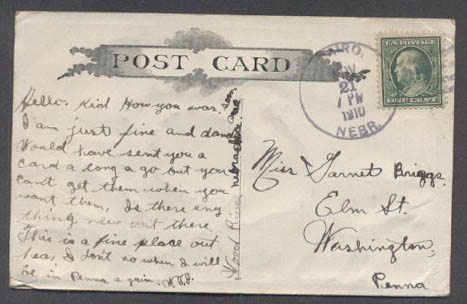 POST CARD
CAIRO,
NOV
21
7 PM
1910
NEBR.
U.S. POSTAGE
ONE CENT
Hello. Kid How you war.
I am just fine and dandy
Would have sent you a
card a long a go but you
cant get them when you
want them, Is there eny
thing new out there
This is a fine place out
hea, I don't no when I will
be in Penna a gain.
Wood River nebraska
Miss Garnet Briggs.
Elm St.
Washington,
Penna